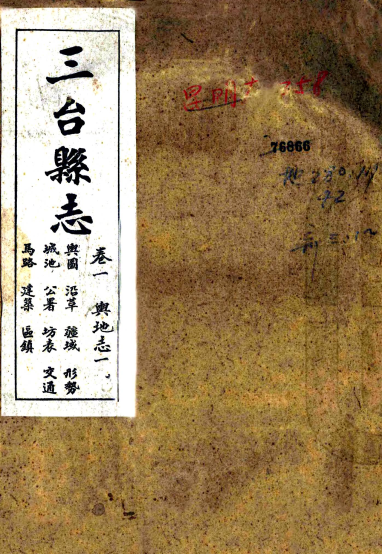 三台縣志
卷一 輿地志一
輿圖 沿革 疆域 形勢
城池 公署 坊表 交通
馬路 建築 區鎮
76866